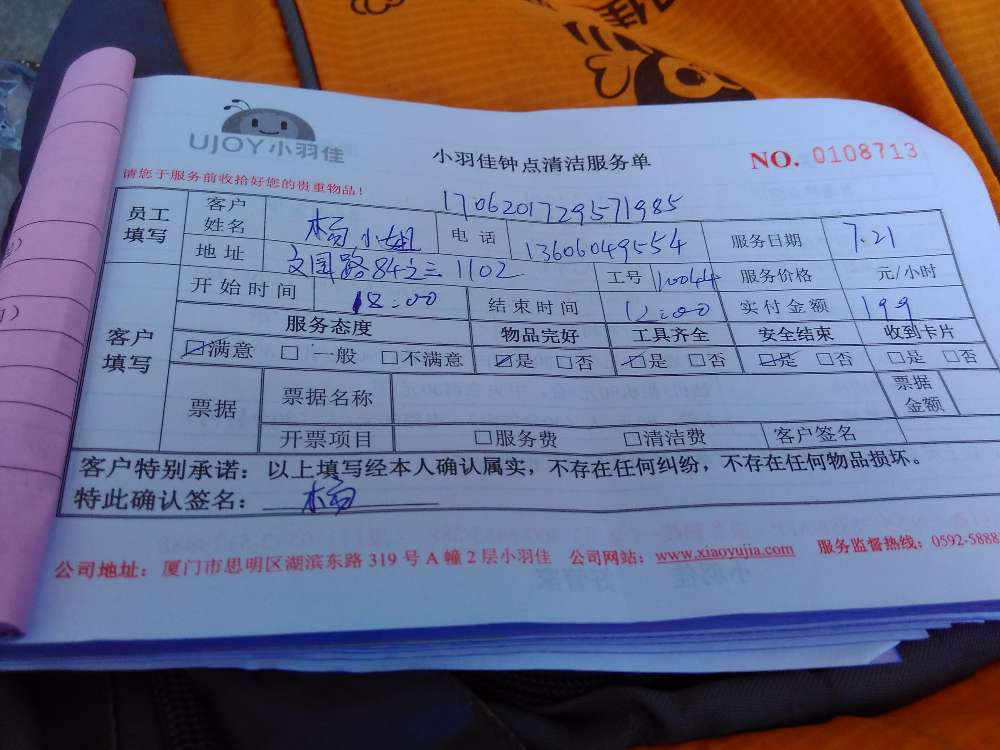 UJOY小羽佳
小羽佳钟点清洁服务单
NO. 0108713
请您于服务前收拾好您的贵重物品!
1706201729571985
员工填写 客户姓名 杨小姐 电话 13606049554 服务日期 7.21
地址 文园路84之三1102 工号 服务价格 元/小时
客户填写 开始时间 结束时间 12:00 实付金额 199
服务态度 物品完好 工具齐全 安全结束 收到卡片
☑满意 □一般 □不满意 ☑是 □否 ☑是 □否 ☑是 □否 □是 □否
票据 票据名称 票据金额
开票项目 □服务费 □清洁费 客户签名
客户特别承诺：以上填写经本人确认属实，不存在任何纠纷，不存在任何物品损坏。
特此确认签名： 杨
公司地址：厦门市思明区湖滨东路319号A幢2层小羽佳 公司网站：www.xiaoyujia.com 服务监督热线：0592-5888